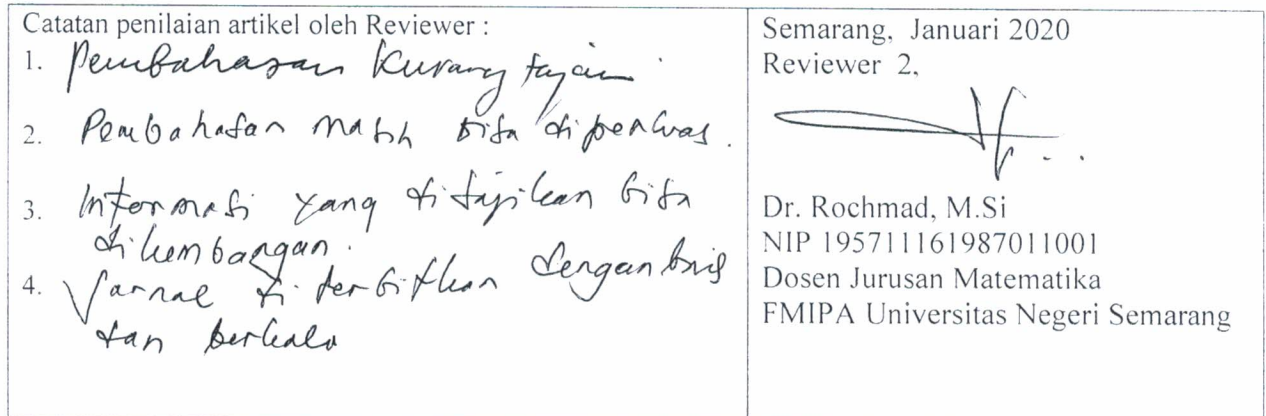 Catatan penilaian artikel oleh Reviewer :
1. Pembahasan kurang tajam.
2. Pembahasan masih bisa diperluas.
3. Informasi yang disajikan bisa
dikembangan.
4. Jurnal diterbitkan dengan baik
dan berkala
Semarang, Januari 2020
Reviewer 2,
Dr. Rochmad, M.Si
NIP 195711161987011001
Dosen Jurusan Matematika
FMIPA Universitas Negeri Semarang